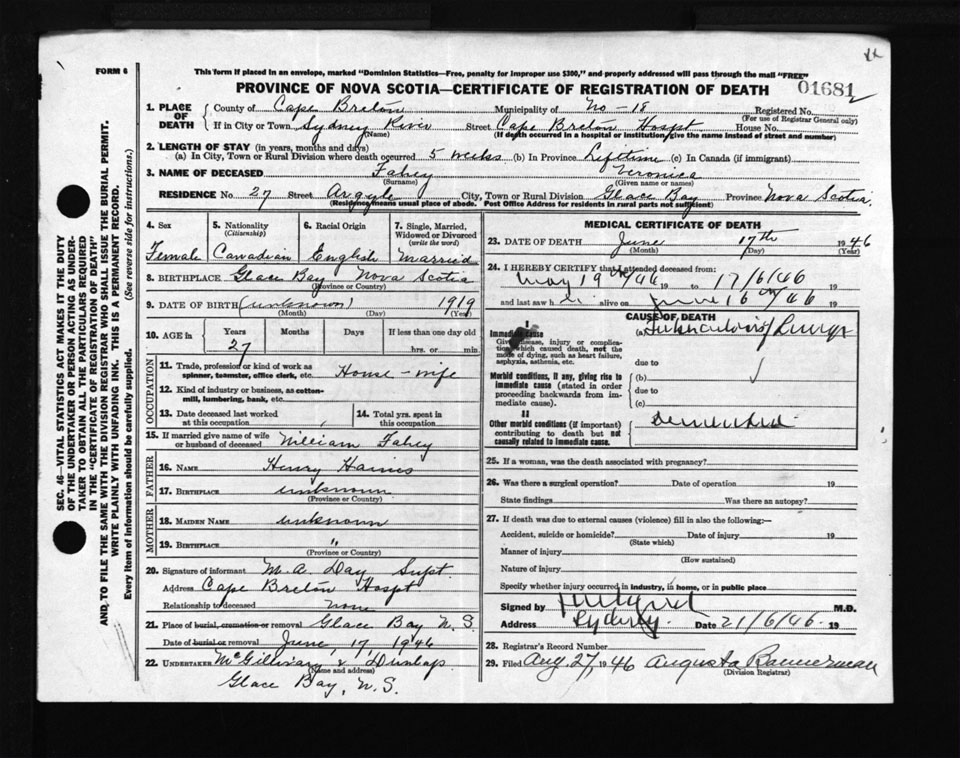 FORM 6
This form if placed in an envelope, marked "Dominion Statistics—Free, penalty for improper use $300," and properly addressed will pass through the mail "FREE"
PROVINCE OF NOVA SCOTIA—CERTIFICATE OF REGISTRATION OF DEATH
01681
1. PLACE OF DEATH County of Cape Breton Municipality of No - 18 Registered No.
(For use of Registrar General only)
If in City or Town Sydney River Street Cape Breton Hospt House No.
(Name) (If death occurred in a hospital or institution, give the name instead of street and number)
2. LENGTH OF STAY (in years, months and days)
(a) In City, Town or Rural Division where death occurred 5 weeks (b) In Province Lifetime (c) In Canada (if immigrant)
3. NAME OF DECEASED Fahey Veronica
(Surname) (Given name or names)
RESIDENCE No. 27 Street Argyle City, Town or Rural Division Glace Bay Province Nova Scotia
(Residence means usual place of abode. Post Office Address for residents in rural parts not sufficient)
4. Sex Female
5. Nationality (Citizenship) Canadian
6. Racial Origin English
7. Single, Married, Widowed or Divorced (write the word) Married
8. BIRTHPLACE Glace Bay Nova Scotia
(Province or Country)
9. DATE OF BIRTH (unknown) 1919
(Month) (Day) (Year)
10. AGE in Years Months Days If less than one day old
27 hrs. or min.
OCCUPATION
11. Trade, profession or kind of work as spinner, teamster, office clerk, etc. House-wife
12. Kind of industry or business, as cotton-mill, lumbering, bank, etc.
13. Date deceased last worked at this occupation
14. Total yrs. spent in this occupation
15. If married give name of wife or husband of deceased William Fahey
FATHER
16. NAME Henry Haines
17. BIRTHPLACE unknown
(Province or Country)
MOTHER
18. MAIDEN NAME unknown
19. BIRTHPLACE "
(Province or Country)
20. Signature of informant M. A. Day Supt.
Address Cape Breton Hospt
Relationship to deceased none
21. Place of burial, cremation or removal Glace Bay N. S.
Date of burial or removal June, 17, 1946
22. UNDERTAKER McGillivary & Dunlap
(Name and address)
Glace Bay, N. S.
MEDICAL CERTIFICATE OF DEATH
23. DATE OF DEATH June 17th 1946
(Month) (Day) (Year)
24. I HEREBY CERTIFY that I attended deceased from:
May 19th/46 19 to 17/6/46 19
and last saw h er alive on June 16th/46 19
CAUSE OF DEATH
I
Immediate cause (a) Tuberculosis of Lungs
Give disease, injury or complication which caused death, not the mode of dying, such as heart failure, asphyxia, asthenia, etc.
due to
Morbid conditions, if any, giving rise to immediate cause (stated in order proceeding backwards from immediate cause).
(b)
due to
(c)
II
Other morbid conditions (if important) contributing to death but not causally related to immediate cause.
25. If a woman, was the death associated with pregnancy?
26. Was there a surgical operation? Date of operation 19
State findings Was there an autopsy?
27. If death was due to external causes (violence) fill in also the following:—
Accident, suicide or homicide? Date of injury 19
(State which)
Manner of injury
(How sustained)
Nature of injury
Specify whether injury occurred in industry, in home, or in public place
Signed by M.D.
Address Sydney Date 21/6/46 19
28. Registrar's Record Number
29. Filed Aug. 27, 1946 Augusta Bannerman
(Division Registrar)
SEC. 46—VITAL STATISTICS ACT MAKES IT THE DUTY
OF THE UNDERTAKER OR PERSON ACTING AS UNDER-
TAKER TO OBTAIN ALL THE PARTICULARS REQUIRED
IN THE "CERTIFICATE OF REGISTRATION OF DEATH"
AND TO FILE THE SAME WITH THE DIVISION REGISTRAR WHO SHALL ISSUE THE BURIAL PERMIT.
WRITE PLAINLY WITH UNFADING INK. THIS IS A PERMANENT RECORD.
Every item of information should be carefully supplied. (See reverse side for instructions.)